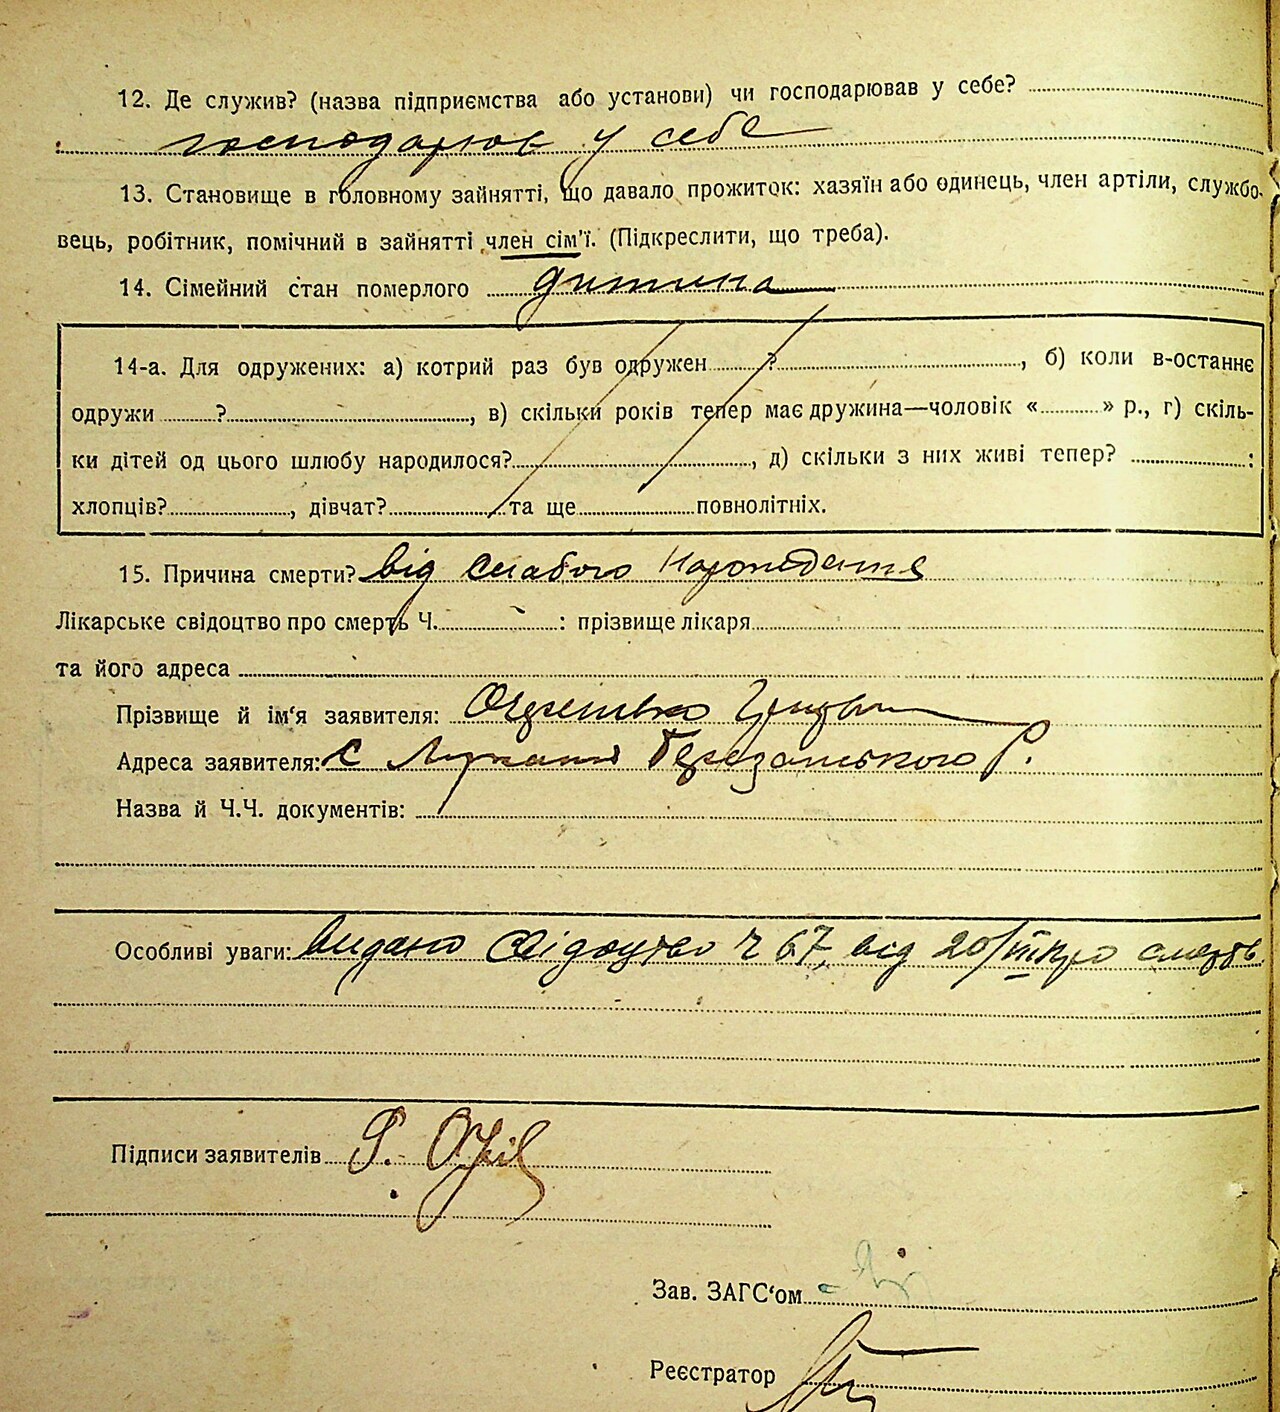 12. Де служив? (назва підприємства або установи) чи господарював у себе?
господарює у себе
13. Становище в головному зайнятті, що давало прожиток: хазяїн або одинець, член артіли, службо-
вець, робітник, помічний в зайнятті член сім'ї. (Підкреслити, що треба).
14. Сімейний стан померлого дитина
14-а. Для одружених: а) котрий раз був одружен ?, б) коли в-останнє
одружи ?, в) скільки років тепер має дружина—чоловік « » р., г) скіль-
ки дітей од цього шлюбу народилося?, д) скільки з них живі тепер? :
хлопців?, дівчат? та ще повнолітніх.
15. Причина смерти? від слабого народження
Лікарське свідоцтво про смерть Ч. : прізвище лікаря
та його адреса
Прізвище й ім'я заявителя:
Адреса заявителя: с Березанського Р.
Назва й Ч.Ч. документів:
Особливі уваги: видано свідоцтво ч 67 від 20/III про смерть
Підписи заявителів
Зав. ЗАГС'ом
Реєстратор